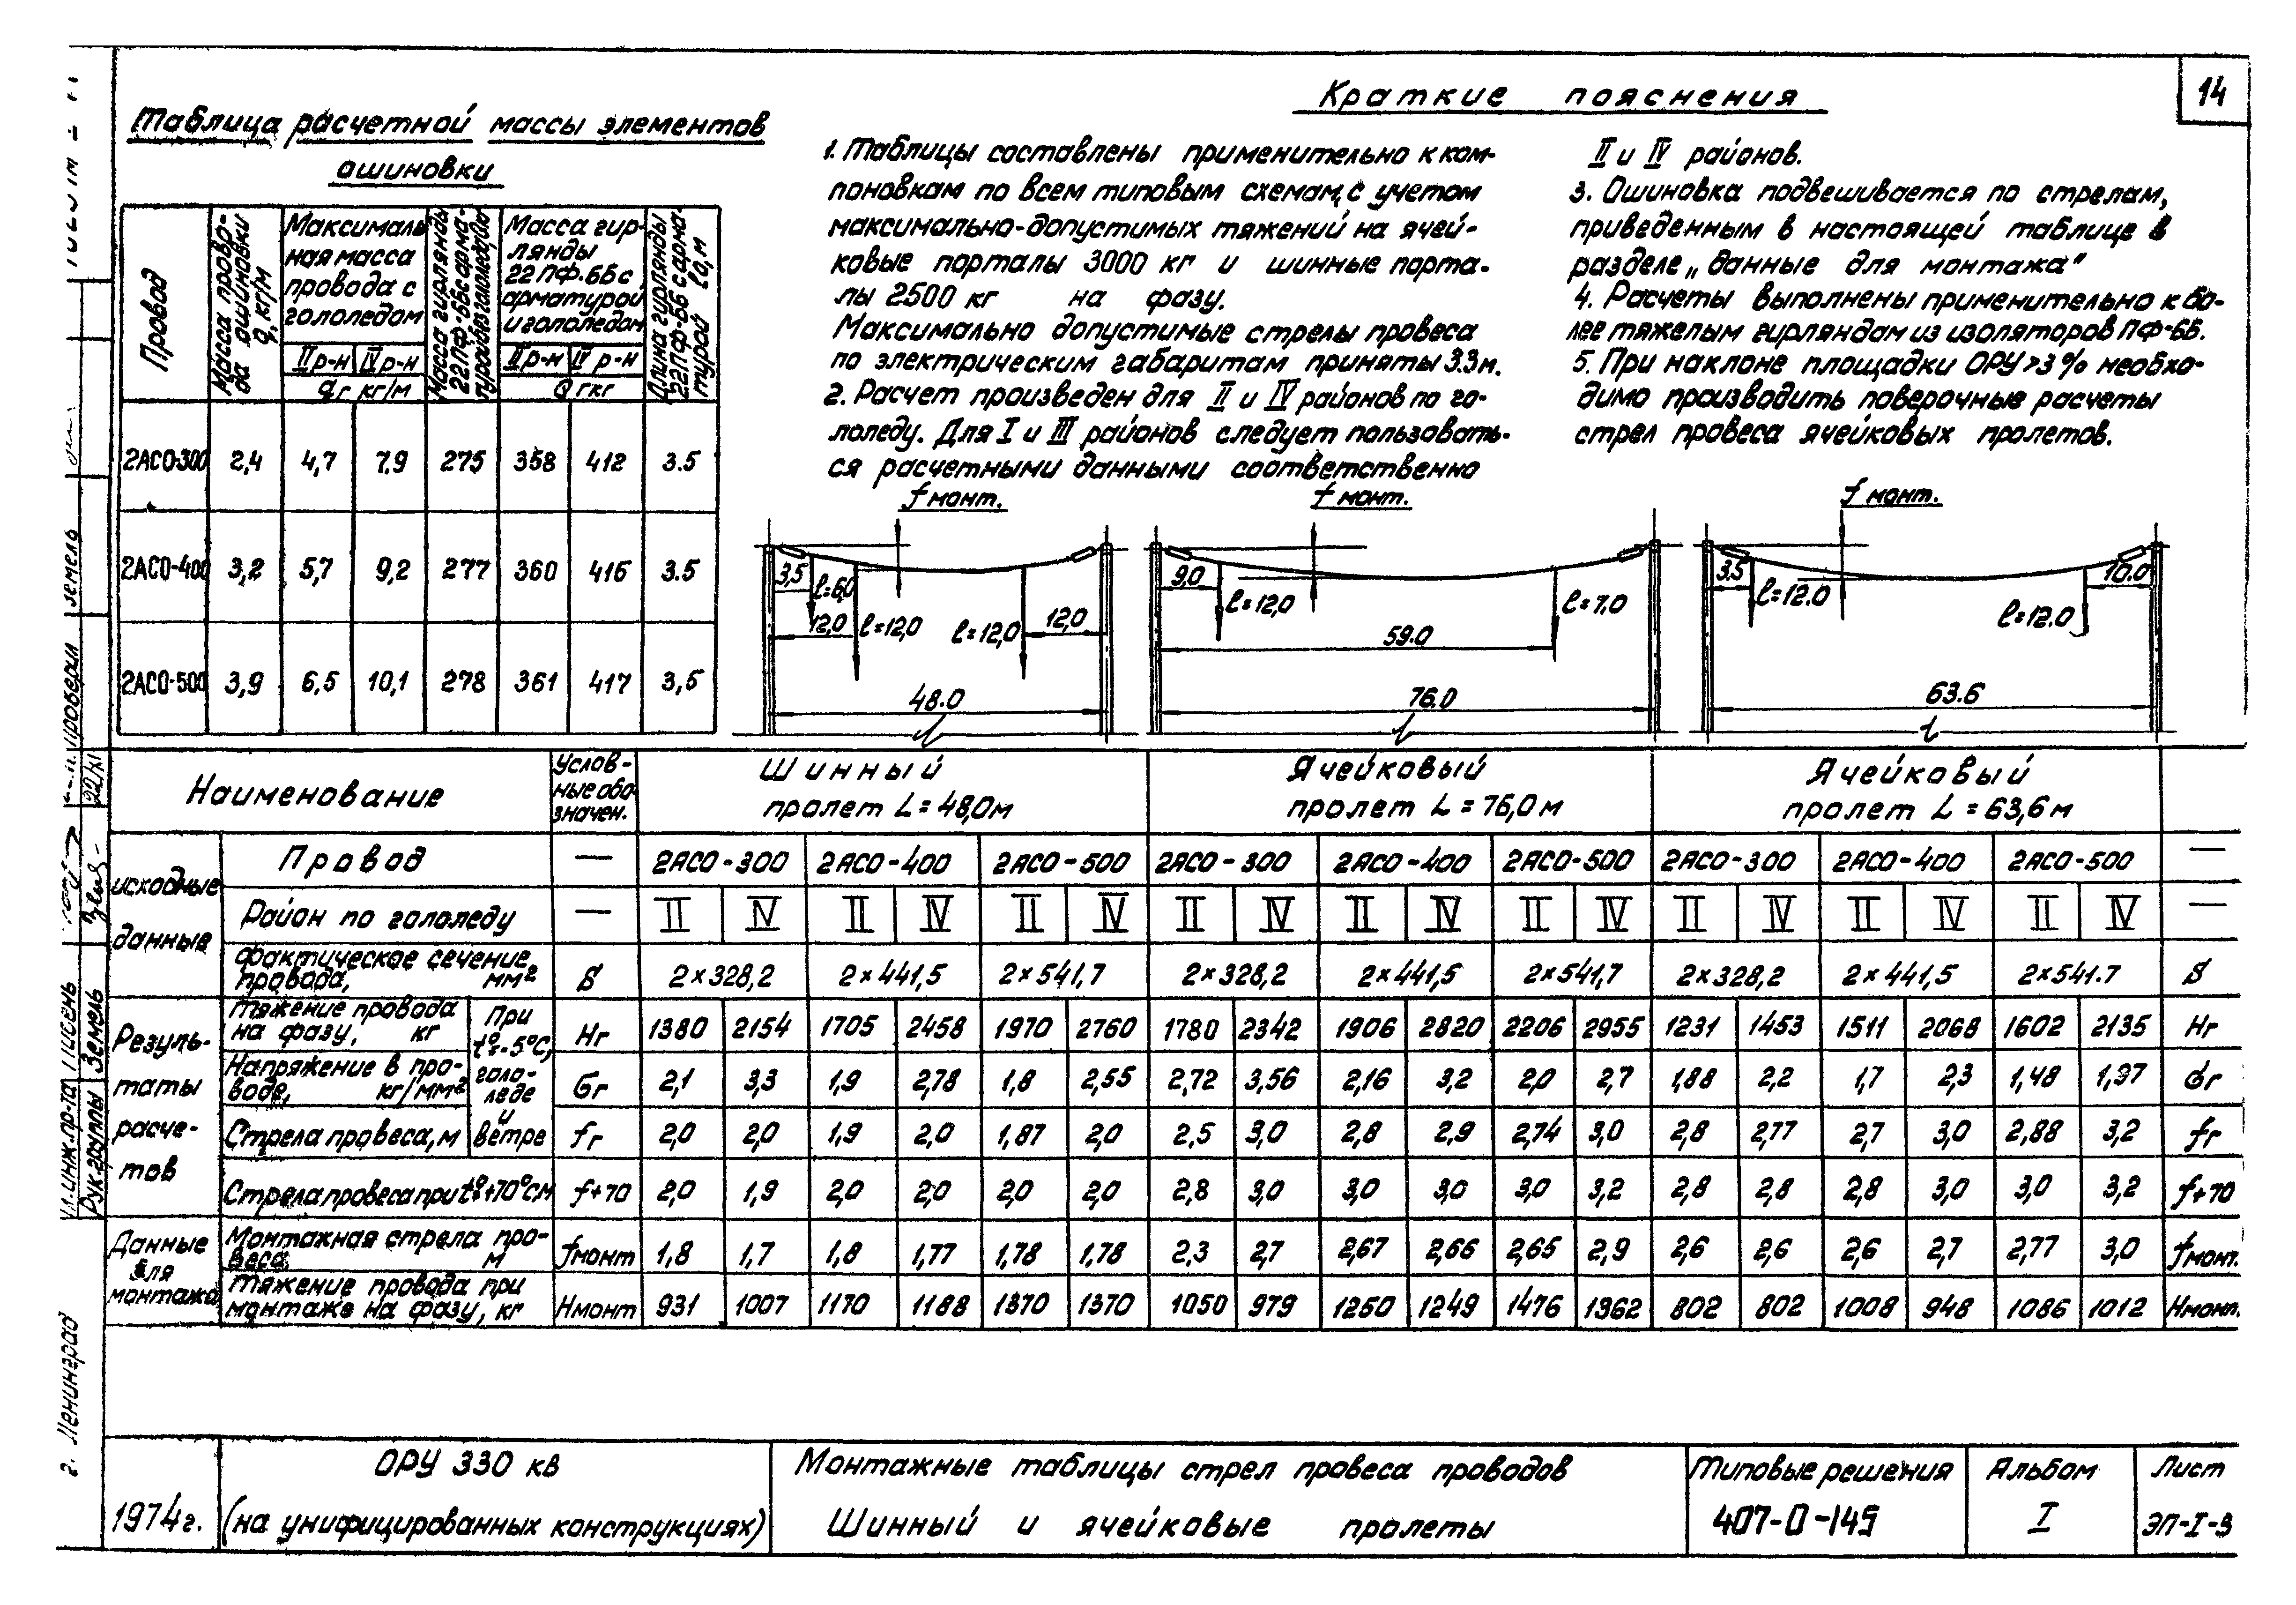 14
Таблица расчетной массы элементов
ошиновки
Провод
Масса прово-
да ошиновки
q, кг/м
Максималь
ная масса
провода с
гололедом
II р-н IV р-н
qг кг/м
Масса гирлянды
22ПФ-6Б с арма-
турой без гололеда
Масса гир-
лянды
22 ПФ-6Б с
арматурой
и гололедом
II р-н IV р-н
Q г кг
Длина гирлянды
22ПФ-6Б с арма-
турой lо, м
2АСО-300 2,4 4,7 7.9 275 358 412 3.5
2АСО-400 3,2 5,7 9,2 277 360 416 3.5
2АСО-500 3,9 6,5 10,1 278 361 417 3,5
Краткие пояснения
1. Таблицы составлены применительно к ком-
поновкам по всем типовым схемам, с учетом
максимально-допустимых тяжений на ячей-
ковые порталы 3000 кг и шинные порта-
лы 2500 кг на фазу.
Максимально допустимые стрелы провеса
по электрическим габаритам приняты 3.3м.
2. Расчет произведен для II и IV районов по го-
лоледу. Для I и III районов следует пользовать-
ся расчетными данными соответственно
II и IV районов.
3. Ошиновка подвешивается по стрелам,
приведенным в настоящей таблице в
разделе „данные для монтажа"
4. Расчеты выполнены применительно к бо-
лее тяжелым гирляндам из изоляторов ПФ-6Б.
5. При наклоне площадки ОРУ >3% необхо-
димо производить поверочные расчеты
стрел провеса ячейковых пролетов.
f монт.
3,5
l=6,0
12,0
l=12,0
l=12,0
12,0
48.0
f монт.
9,0
l=12,0
l=7.0
59.0
76.0
f монт.
3.5
l=12.0
10.0
l=12.0
63.6
Наименование
Услов-
ные обо-
значен.
Шинный
пролет L = 48,0м
Ячейковый
пролет L = 76,0м
Ячейковый
пролет L = 63,6м
исходные
данные
Провод — 2АСО-300 2АСО-400 2АСО-500 2АСО-300 2АСО-400 2АСО-500 2АСО-300 2АСО-400 2АСО-500 —
Район по гололеду — II IV II IV II IV II IV II IV II IV II IV II IV II IV —
Фактическое сечение
провода, мм² S 2×328,2 2×441,5 2×541,7 2×328,2 2×441,5 2×541,7 2×328,2 2×441,5 2×541.7 S
Резуль-
таты
расче-
тов
При
t°=-5°С,
голо-
леде
и
ветре
Тяжение провода
на фазу, кг Hг 1380 2154 1705 2458 1970 2760 1780 2342 1906 2820 2206 2955 1231 1453 1511 2068 1602 2135 Hг
Напряжение в про-
воде, кг/мм² σг 2,1 3,3 1,9 2,78 1,8 2,55 2,72 3,56 2,16 3,2 2,0 2,7 1,88 2,2 1,7 2,3 1,48 1,97 σг
Стрела провеса, м fг 2,0 2,0 1,9 2,0 1,87 2,0 2,5 3,0 2,8 2,9 2,74 3,0 2,8 2,77 2,7 3,0 2,88 3,2 fг
Стрела провеса при t°+70°С, м f+70 2,0 1,9 2,0 2,0 2,0 2,0 2,8 3,0 3,0 3,0 3,0 3,2 2,8 2,8 2,8 3,0 3,0 3,2 f+70
Данные
для
монтажа
Монтажная стрела про-
веса м fмонт 1,8 1,7 1,8 1,77 1,78 1,78 2,3 2,7 2,67 2,66 2,65 2,9 2,6 2,6 2,6 2,7 2,77 3,0 fмонт.
Тяжение провода при
монтаже на фазу, кг Нмонт 931 1007 1170 1188 1370 1370 1050 979 1250 1249 1476 1362 802 802 1008 948 1086 1012 Нмонт.
Рук. группы Земель
проверил Земель
г. Ленинград
1974г.
ОРУ 330 кв
(на унифицированных конструкциях)
Монтажные таблицы стрел провеса проводов
Шинный и ячейковые пролеты
Типовые решения
407-0-145
Альбом
I
Лист
ЭП-I-3